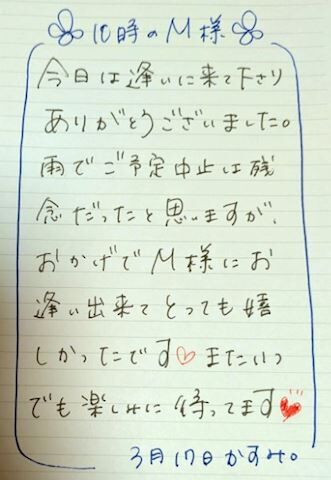 10時のM様
今日は逢いに来て下さり
ありがとうございました。
雨でご予定中止は残
念だったと思いますが、
おかげでM様にお
逢い出来てとっても嬉
しかったです♡またいつ
でも楽しみに待ってます♥
3月17日かすみ。